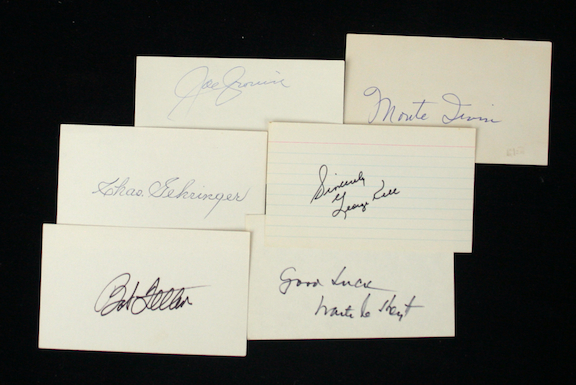 Joe Cronin
Monte Irvin
Chas. Gehringer
Sincerely
George Kell
Bob Feller
Good Luck
Waite Hoyt